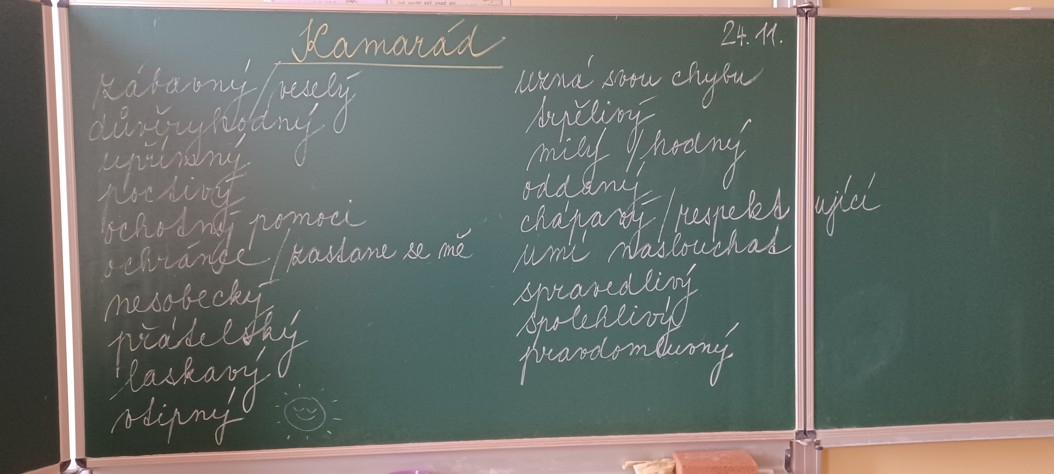 Kamarád
24. 11.
zábavný / veselý
důvěryhodný
upřímný
poctivý
ochotný pomoci
ochránce / zastane se mě
nesobecký
přátelský
laskavý
vtipný
uzná svou chybu
trpělivý
milý / hodný
oddaný
chápavý / respektující
umí naslouchat
spravedlivý
spolehlivý
pravdomluvný